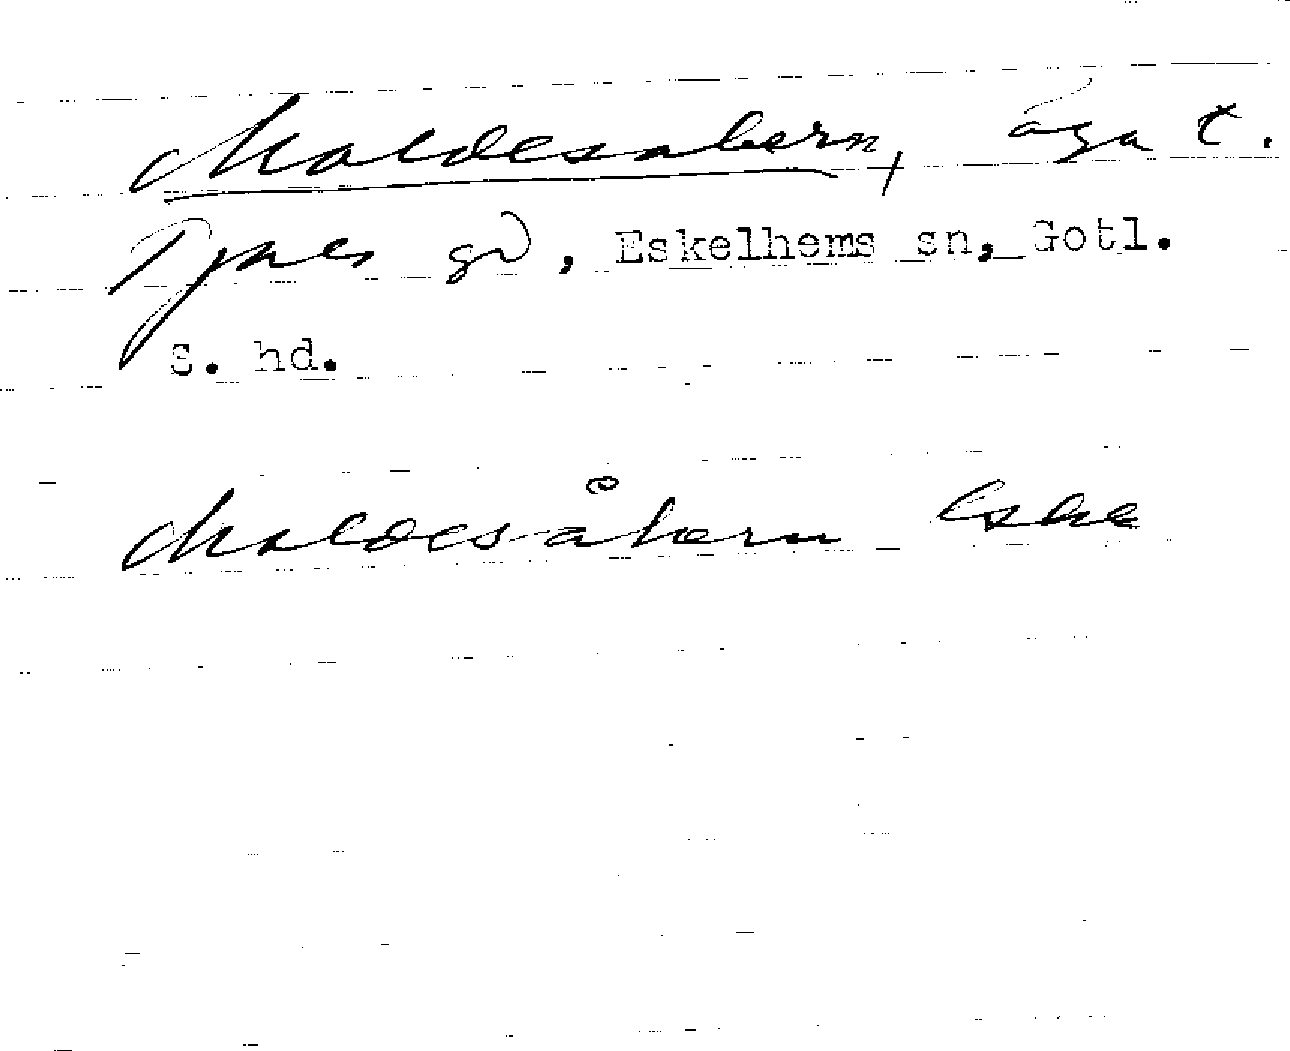 Maldesakern, äga t.
Tjuls gd, Eskelhems sn, Gotl.
S. hd.
Maldesåkern Eske